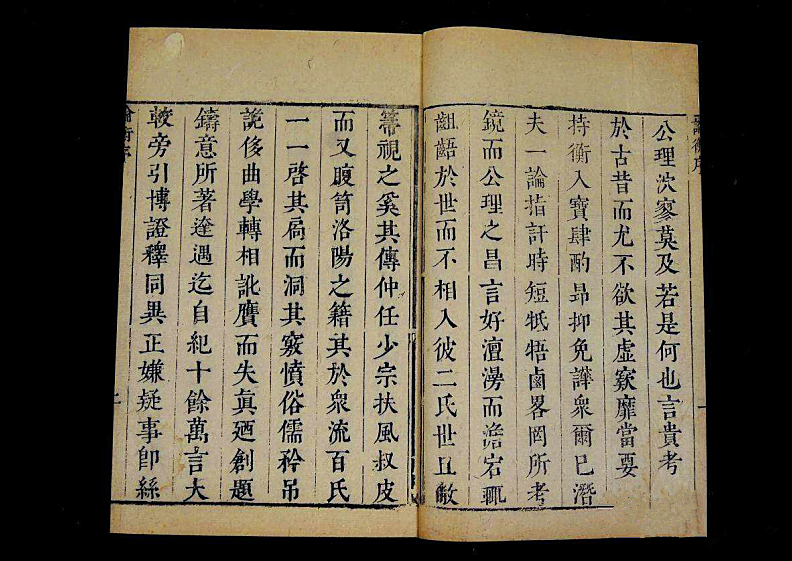 論衡序
公理沈寥莫及若是何也言貴考
於古昔而尤不欲其虛窽靡當要
持衡入寶肆酌昻抑免譁衆爾已潛
夫一論指訐時短牴牾鹵畧罔所考
鏡而公理之昌言好澶湯而澹宕輒
齟齬於世而不相入彼二氏世且敝
一
帚視之奚其傳仲任少宗扶風叔皮
而又腹笥洛陽之籍其於衆流百氏
一一啓其扃而洞其竅憤俗儒矜吊
詭侈曲學轉相訛贗而失眞廼創題
鑄意所著逢遇迄自紀十餘萬言大
較旁引博證釋同異正嫌疑事卽絲
二